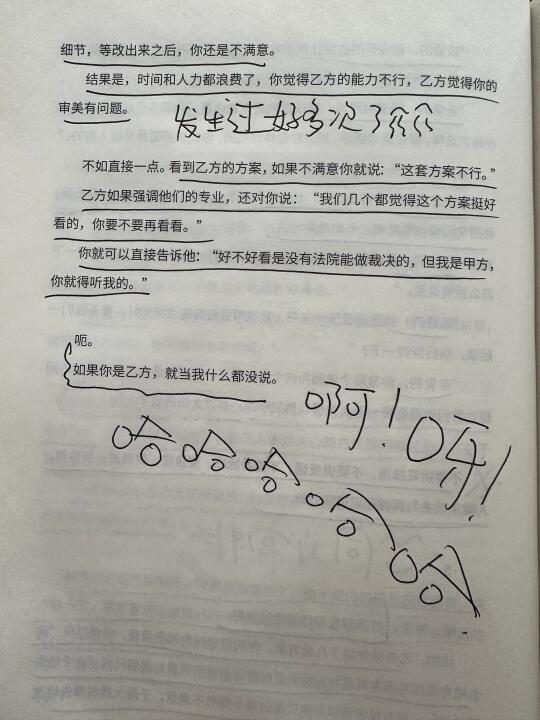 细节，等改出来之后，你还是不满意。
结果是，时间和人力都浪费了，你觉得乙方的能力不行，乙方觉得你的
审美有问题。
发生过好多次了
不如直接一点。看到乙方的方案，如果不满意你就说：“这套方案不行。”
乙方如果强调他们的专业，还对你说：“我们几个都觉得这个方案挺好
看的，你要不要再看看。”
你就可以直接告诉他：“好不好看是没有法院能做裁决的，但我是甲方，
你就得听我的。”
呃。
如果你是乙方，就当我什么都没说。
啊！